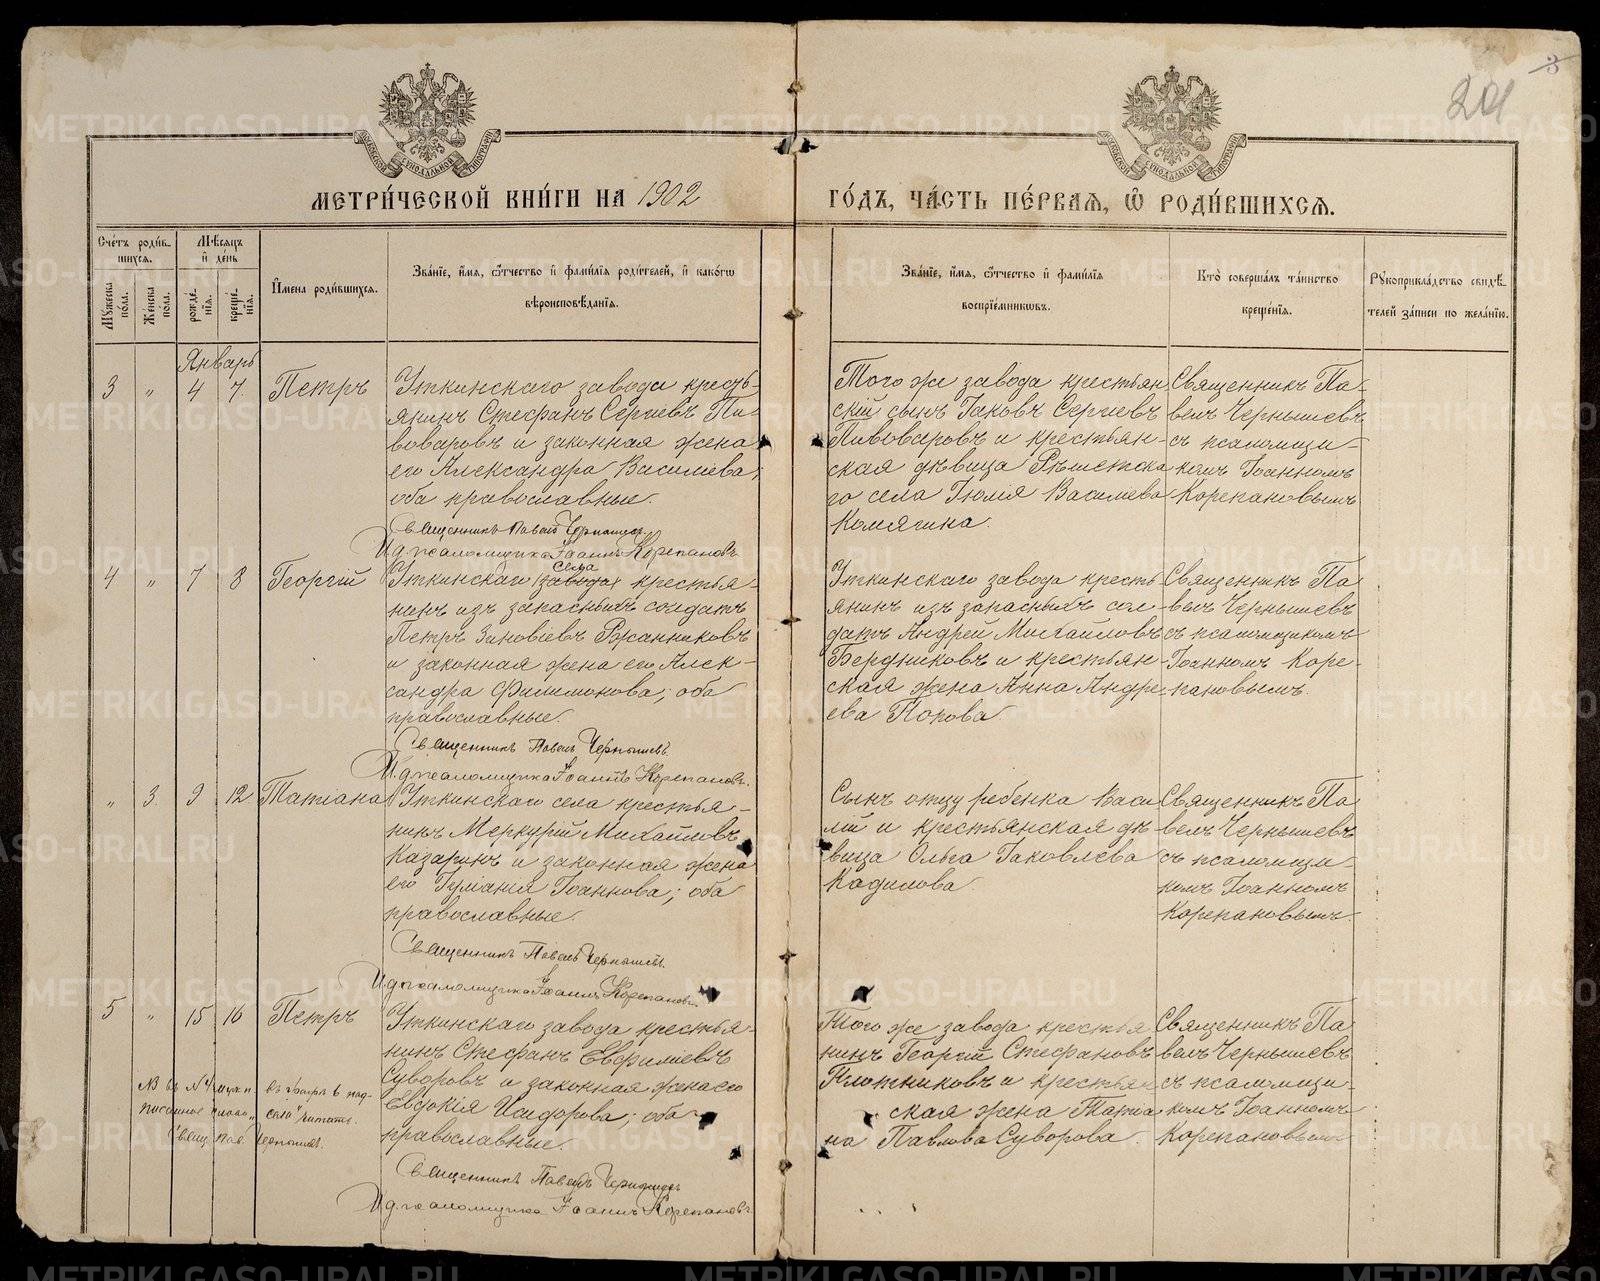 3
201
МОСКОВСКОЙ СѴНОДАЛЬНОЙ ТИПОГРАФІИ
МОСКОВСКОЙ СѴНОДАЛЬНОЙ ТИПОГРАФІИ
МЕТРИ́ЧЕСКОЙ КНИ́ГИ НА 1902
ГО́ДЪ, ЧА́СТЬ ПЕ́РВАѦ, Ѡ҆ РОДИ́ВШИХСѦ.
Сче́тъ роди́в-
шихсѧ.
Мѣ́сѧцъ
и҆ де́нь
Мꙋ́жеска по́ла.
Же́нска по́ла.
рожде́-нїѧ.
креще́-нїѧ.
И҆мена роди́вшихсѧ.
Зва́нїе, и҆́мѧ, ѻ҆́тчество и҆ фами́лїѧ роди́телей, и҆ како́гѡ
вѣроисповѣ́данїѧ.
Зва́нїе, и҆́мѧ, ѻ҆́тчество и҆ фами́лїѧ
воспрїе́мникѡвъ.
Кто̀ соверша́лъ та́инство
креще́нїѧ.
Рꙋкоприкла́дство свидѣ́-
телей за́писи по жела́нїю.
Январь
3 „ 4 7. Петръ
Уткинскаго завода кресть-
янинъ Стефанъ Сергѣевъ Пи-
воваровъ и законная жена
его Александра Василиева;
оба православные.
Священникъ Павелъ Чернышевъ
И.д. псаломщика Іоаннъ Корепановъ
Того же завода крестьян
скій сынъ Іаковъ Сергѣевъ
Пивоваровъ и крестьян-
ская дѣвица Рѣшетска
го села Іюлія Василиева
Комягина.
Священникъ Па-
велъ Чернышевъ
съ псаломщи-
комъ Іоанномъ
Корепановымъ
4 „ 7 8 Георгій
села
Уткинскаго (завода) крестья-
нинъ изъ запасныхъ солдатъ
Петръ Зиновіевъ Ржанниковъ
и законная жена его Алек-
сандра Филимонова; оба
православные.
Священникъ Павелъ Чернышевъ
И.д. псаломщика Іоаннъ Корепановъ.
Уткинскаго завода кресть
янинъ изъ запасныхъ сол-
датъ Андрей Михайловъ
Бердниковъ и крестьян-
ская жена Анна Андре
ева Попова
Священникъ Па
велъ Чернышевъ
съ псаломщикомъ
Іоанномъ Коре-
пановымъ.
„ 3. 9 12 Татіана
Уткинскаго села крестья-
нинъ Меркурій Михайловъ
Казаринъ и законная жена
его Іуліанія Іоаннова; оба
православные.
Священникъ Павелъ Чернышевъ.
И.д. псаломщика Іоаннъ Корепановъ.
Сынъ отцу ребенка Васи
лій и крестьянская дѣ
вица Ольга Іаковлева
Кадилова
Священникъ Па
велъ Чернышевъ
съ псаломщи-
комъ Іоанномъ
Корепановымъ.
5 „ 15 16 Петръ
Уткинскаго завода крестья-
нинъ Стефанъ Евфиміевъ
Суворовъ и законная жена его
Евдокія Исидорова; оба
православные.
Священникъ Павелъ Чернышевъ
И.д. псаломщика Іоаннъ Корепановъ.
Того же завода крестья
нинъ Георгій Стефановъ
Плотниковъ и крестьян
ская жена Татіа
на Павлова Суворова.
Священникъ Па
велъ Чернышевъ
съ псаломщи-
комъ Іоанномъ
Корепановымъ
№ 4 въ графѣ 6 над-
писанное слово „села“ читать.
Свящ. Пав. Чернышевъ.